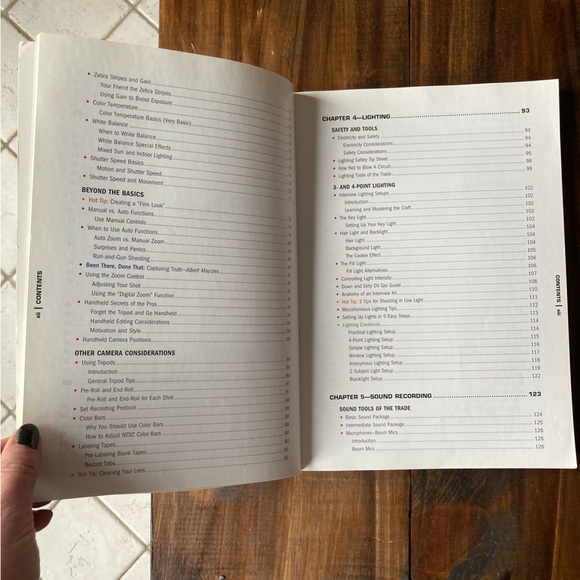 Zebra Stripes and Gain
Your Friend the Zebra Stripes
Using Gain to Boost Exposure
Color Temperature
Color Temperature Basics (Very Basic)
White Balance
When to White Balance
White Balance Special Effects
Mixed Sun and Indoor Lighting
Shutter Speed Basics
Motion and Shutter Speed
Shutter Speed and Movement
BEYOND THE BASICS
Hot Tip: Creating a "Film Look"
Manual vs. Auto Functions
Use Manual Controls
When to Use Auto Functions
Auto Zoom vs. Manual Zoom
Surprises and Panics
Run-and-Gun Shooting
Been There, Done That: Capturing Truth—Albert Maysles
Using the Zoom Control
Adjusting Your Shot
Using the "Digital Zoom" Function
Handheld Secrets of the Pros
Forget the Tripod and Go Handheld
Handheld Editing Considerations
Motivation and Style
Handheld Camera Positions
OTHER CAMERA CONSIDERATIONS
Using Tripods
Introduction
General Tripod Tips
Pre-Roll and End-Roll
Pre-Roll and End-Roll for Each Shot
Set Recording Protocol
Color Bars
Why You Should Use Color Bars
How to Adjust NTSC Color Bars
Labeling Tapes
Pre-Labeling Blank Tapes
Record Tabs
Hot Tip: Cleaning Your Lens
xii | CONTENTS
CHAPTER 4—LIGHTING 93
SAFETY AND TOOLS
Electricity and Safety 94
Electricity Considerations 94
Safety Considerations 95
Lighting Safety Tip Sheet 98
How Not to Blow A Circuit 99
Lighting Tools of the Trade
3- AND 4-POINT LIGHTING
Interview Lighting Setups 102
Introduction 102
Learning and Mastering the Craft 102
The Key Light 103
Setting Up Your Key Light 103
Hair Light and Backlight 104
Hair Light 104
Background Light 104
The Cookie Effect 105
The Fill Light 106
Fill Light Alternatives 106
Controlling Light Intensity 107
Down and Dirty DV Gel Guide 108
Anatomy of an Interview Kit 110
Hot Tip: 3 Tips for Shooting in Low Light 111
Miscellaneous Lighting Tips 112
Setting Up Lights in 5 Easy Steps 113
Lighting Cookbook 114
Practical Lighting Setup 114
4-Point Lighting Setup 115
Simple Lighting Setup 116
Window Lighting Setup
Anonymous Lighting Setup
2-Subject Light Setup 119
Blacklight Setup 122
CHAPTER 5—SOUND RECORDING 123
SOUND TOOLS OF THE TRADE
Basic Sound Package 124
Intermediate Sound Package 125
Microphones—Boom Mics 126
Introduction 126
Boom Mics 126
CONTENTS | xiii